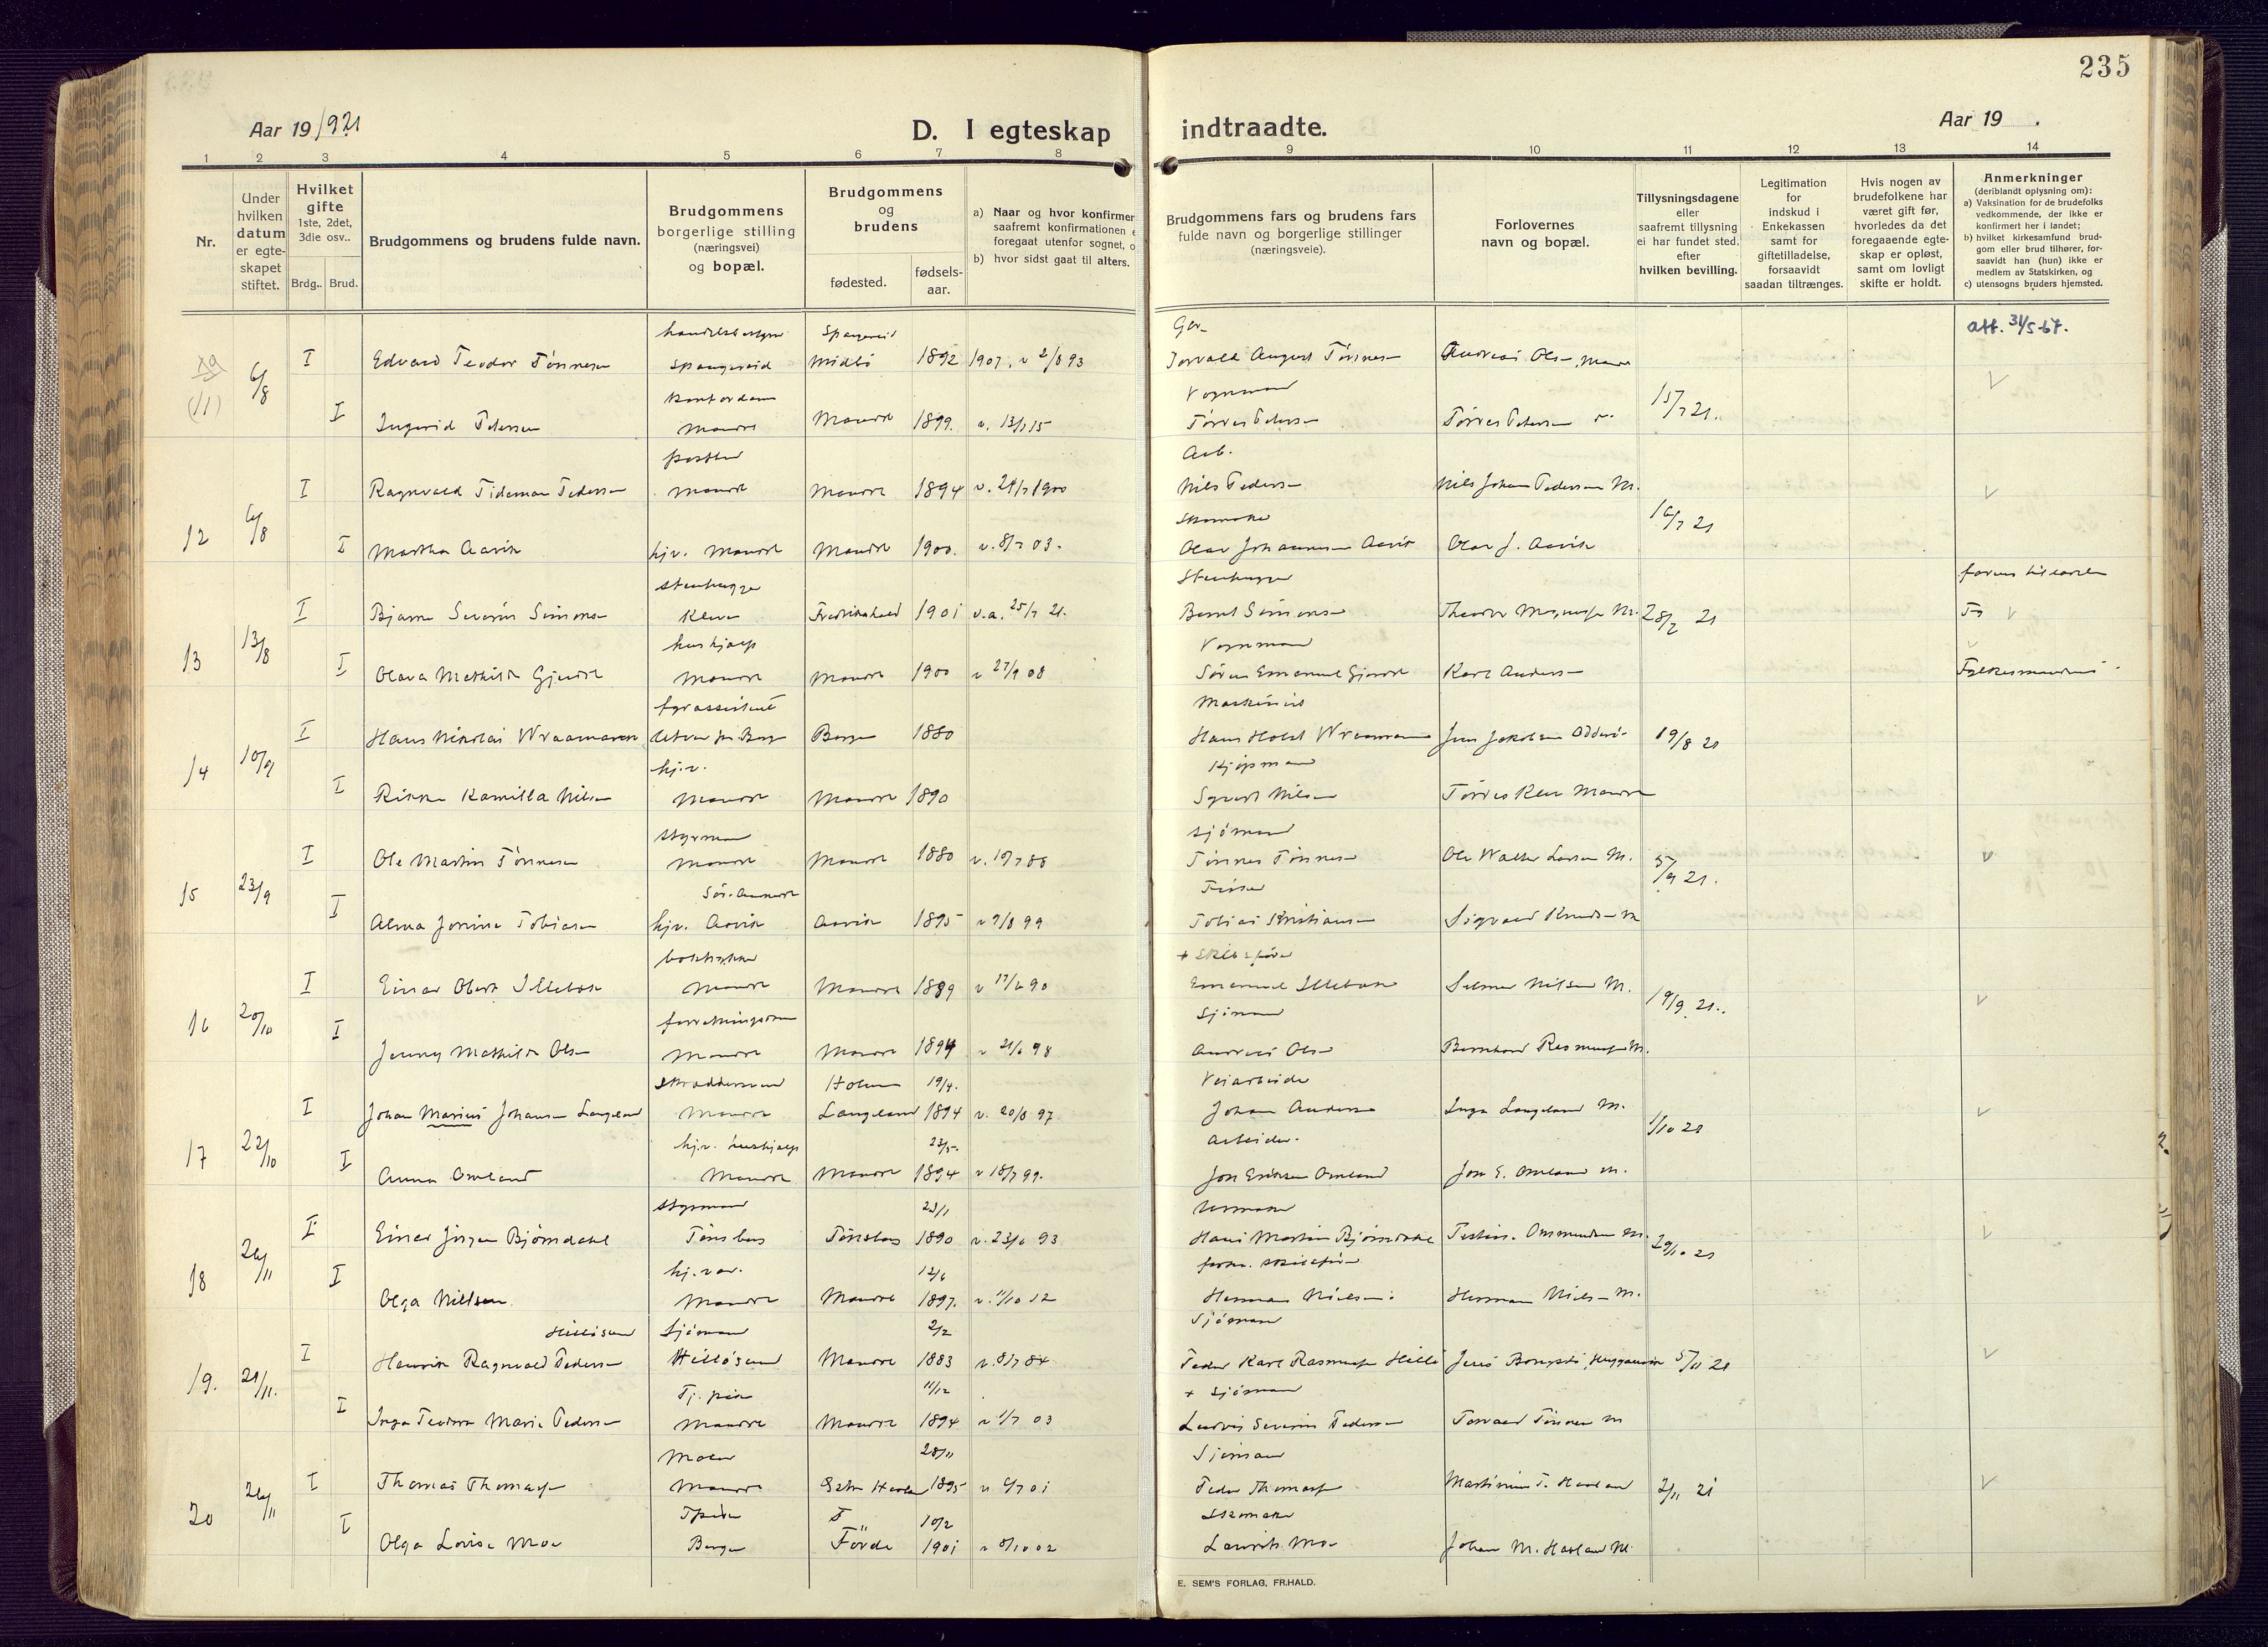 235
Aar 19/921
D. I egteskap
indtraadte.
Aar 19 .
1 2 3 4 5 6 7 8 9 10 11 12 13 14
Nr.
Under hvilken datum er egteskapet stiftet.
Hvilket gifte 1ste, 2det, 3die osv..
Brdg.. Brud.
Brudgommens og brudens fulde navn.
Brudgommens borgerlige stilling (næringsvei) og bopæl.
Brudgommens og brudens
fødested.
fødsels-aar.
a) Naar og hvor konfirmer
saafremt konfirmationen e
foregaat utenfor sognet, o
b) hvor sidst gaat til alters.
Brudgommens fars og brudens fars
fulde navn og borgerlige stillinger
(næringsveie).
Forlovernes
navn og bopæl.
Tillysningsdagene
eller
saafremt tillysning
ei har fundet sted,
efter
hvilken bevilling.
Legitimation
for
indskud i
Enkekassen
samt for
giftetilladelse,
forsaavidt
saadan tiltrænges.
Hvis nogen av
brudefolkene har
været gift før,
hvorledes da det
foregaaende egte-
skap er opløst,
samt om lovligt
skifte er holdt.
Anmerkninger
(deriblandt oplysning om):
a) Vaksination for de brudefolks
vedkommende, der ikke er
konfirmert her i landet;
b) hvilket kirkesamfund brud-
gom eller brud tilhører, for-
saavidt han (hun) ikke er
medlem av Statskirken, og
c) utensogns bruders hjemsted.
Spangereid
Ger-
att. 31/5-67.
(11) 6/8 I Edvard Teodor Tönnesen Spangereid Midbö 1892 1907. v 2/8 93 Torvald August Tönnesen Andreas Olsen, Mandal
Vognmand
I Ingerid Petersen Mandal Mandal 1899. v. 13/7 15 Törres Petersen Törres Petersen 15/7 21.
Arb.
12 6/8 I Ragnvald Tideman Pedersen Mandal Mandal 1894 v. 24/7 1900 Nils Pedersen Nils Johan Pedersen M.
Skomaker
16/7 21
I Martha Aavik hjv. Mandal Mandal 1900. v. 8/7 03. Olav Johannesen Aavik Olav J. Aavik
Stenhugger
Stenhugger
13 13/8 I Bjarne Severin Simonsen Kleven Fredrikshald 1901 v.a. 25/7 21. Bernt Simonsen M. 28/7 21
hushjælp
Vognmand
I Olava Mathilde Gjerdal Mandal Mandal 1900 v 27/9 08 Sören Emanuel Gjerdal Karl Andersen Fylkesmanden
fyrassistent
Maskinist
14 10/9 I Hans Nikolai Wraamann Bergen 1880 Hans Holst Wraamann Jens Jakobsen Odderö 19/8 21
hj.v.
Kjöpmand
I Rikka Kamilla Nilsen Mandal Mandal 1890 Sigvart Nilsen Törres Mandal
Styrmand
Sjömand
15 23/9 I Ole Martin Tönnesen Mandal Mandal 1880 v. 10/7 88 Tönnes Tönnesen Ole Walter Larsen M. 5/9 21.
Fisker
I Alma Jorina Tobiasen hjv. Aavik Aavik 1895 v 9/8 99 Tobias Kristiansen Sigvald Knudsen M
+ Skibsförer
16 20/10 I Einar Obert Illebæk Mandal Mandal 1889 v 17/6 90 Emanuel Illebæk Selmer Nilsen M. 19/9 21..
Sjömand
I Jenny Mathilde Olsen Mandal Mandal 1894 v 21/6 98 Andreas Olsen Bernhard Rasmussen M.
Skræddersvend Holum 19/4. Veiarbeider
17 22/10 I Johan Marius Johansen Langeland Mandal Langeland 1894 v. 20/8 97 Johan Andersen Inga Langeland M. 1/10 21
hj.v. hushjælp 23/5. Arbeider.
I Anna Omland Mandal Mandal 1894 v 18/7 99. Jon Eriksen Omland Jon E. Omland M.
Styrmand 23/1 Urmaker
18 26/11 I Einar Jörgen Björndahl Tönsberg Tönsberg 1890 v. 23/6 93 Hans Martin Björndahl Ommundsen M. 29/10 21
hj. v. 12/6 skibsförer
I Olga Nielsen Mandal Mandal 1897. v. 11/10 12 Herman Nielsen Herman Nielsen M.
Hillösund Sjömand 2/2 Sjömand
19. 21/11. I Henrik Ragnvald Pedersen Hillösund Mandal 1883 v. 8/7 84 Peder Karl Rasmussen Hillö 5/11 21
Tj. pike 11/12 + Sjömand
I Inga Teodora Marie Pedersen Mandal Mandal 1894 v 1/7 03 Ludvig Severin Pedersen Torvald Tönnesen M
Maler 28/11 Sjömand
20 26/11 I Thomas Thomassen Mandal 1895 v 6/7 01 Peder Thomassen Martinius T. Haaland 2/11 21
10/2 Skomaker
I Olga Lovise Moe Bergen Förde 1901 v 8/10 02 Laurits Moe Johan M. Haaland M.
E. SEM'S FORLAG, FR.HALD.